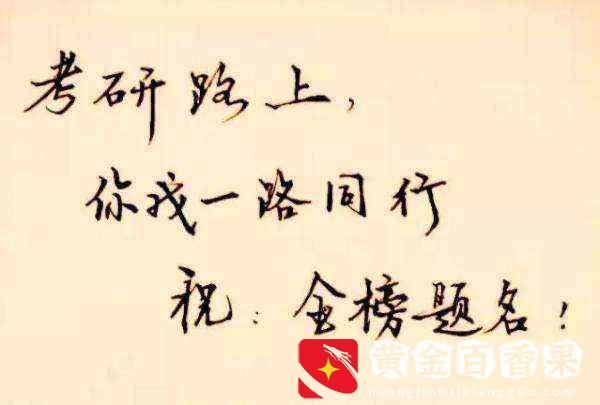 考研路上，
你我一路同行
祝：金榜题名！
黄金百香果
huangjinbaixiangguo.com